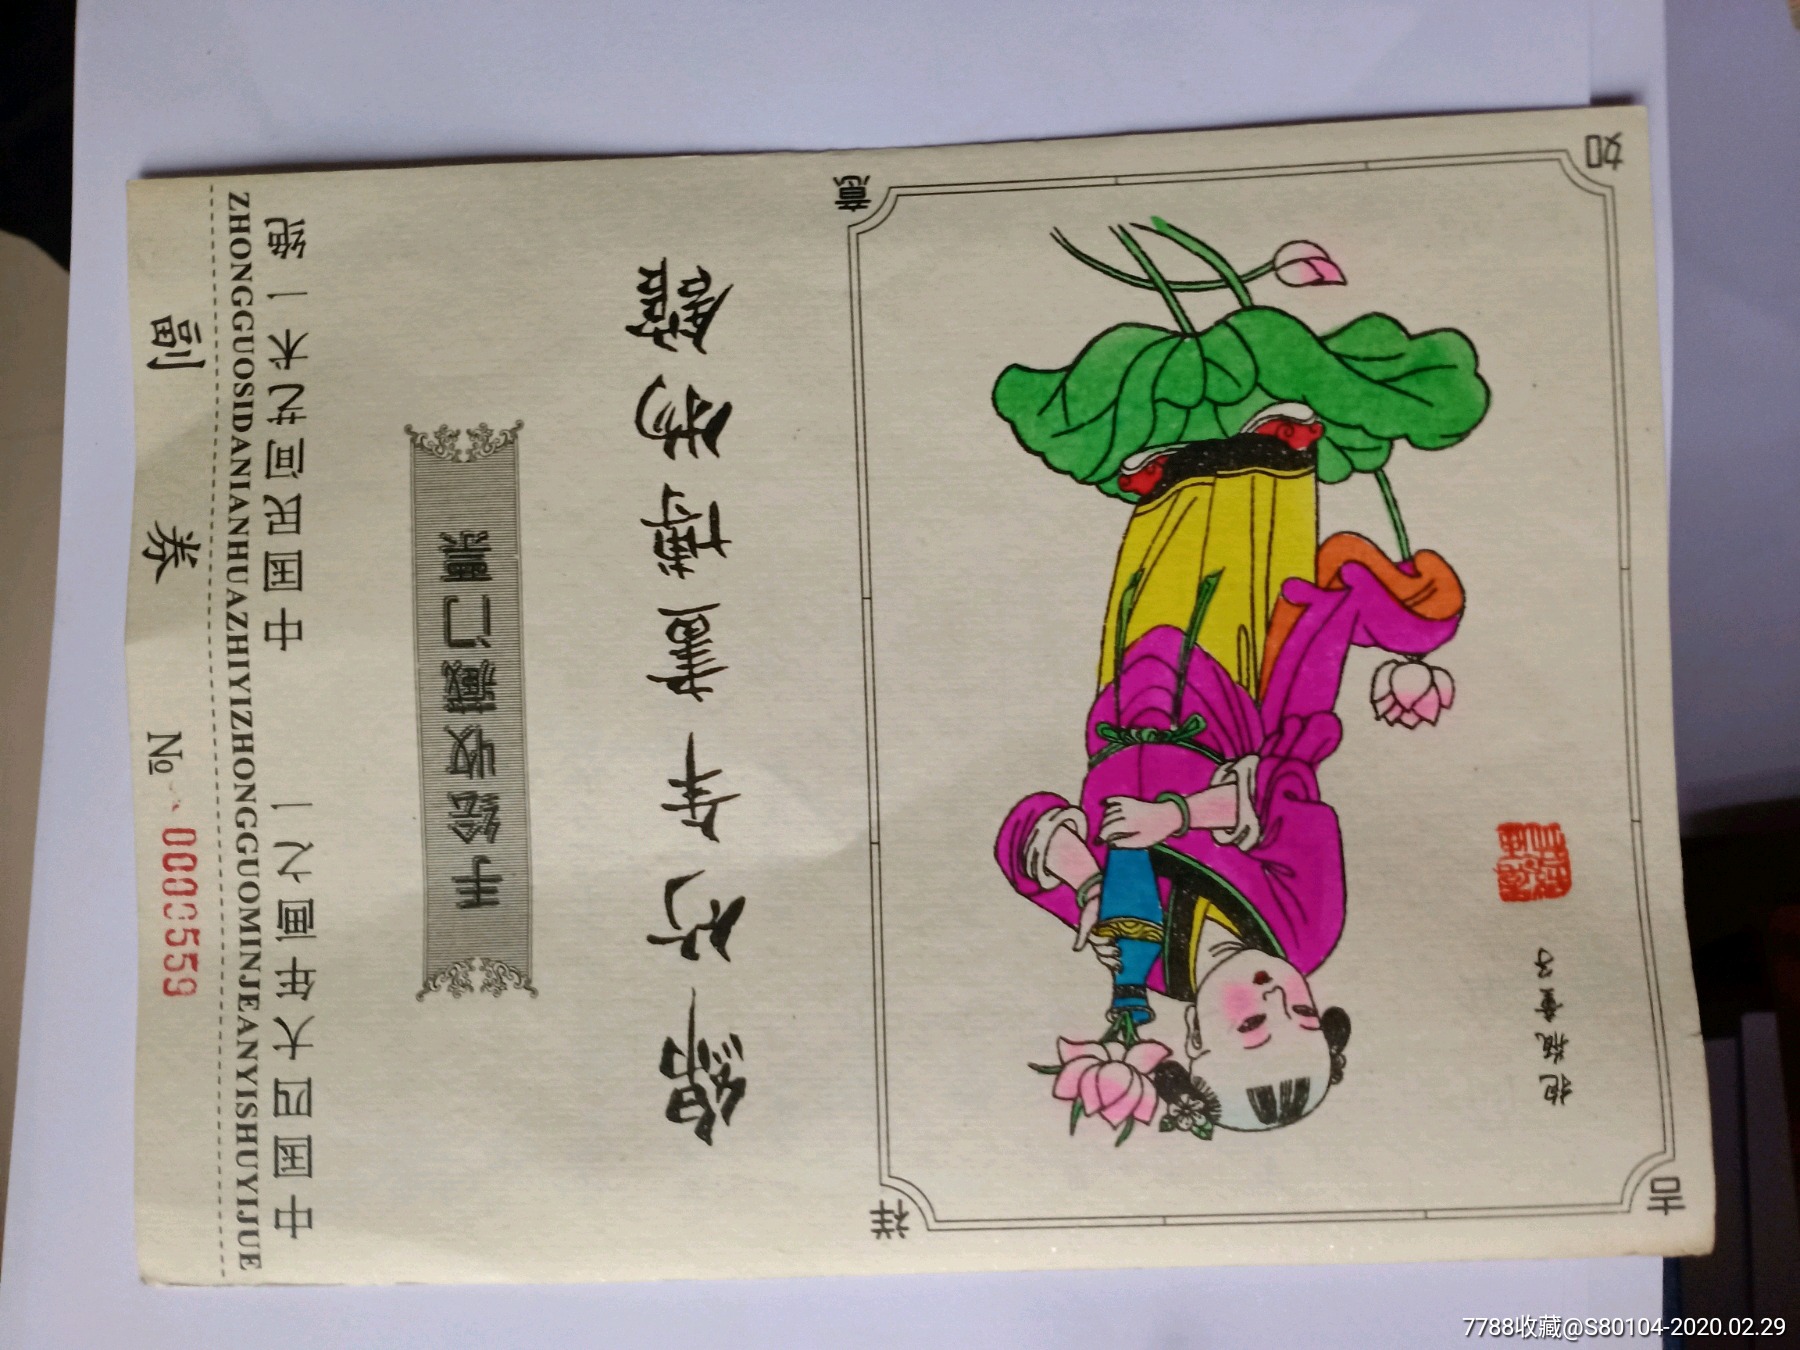 吉
如
抱瓶童子
祥
意
綿竹年畫博物館
手绘收藏门票
中国四大年画之一 中国民间艺术一绝
ZHONGGUOSIDANIANHUAZHIYIZHONGGUOMINJEANYISHUYIJUE
副 券 № 0000559
7788收藏@S80104-2020.02.29